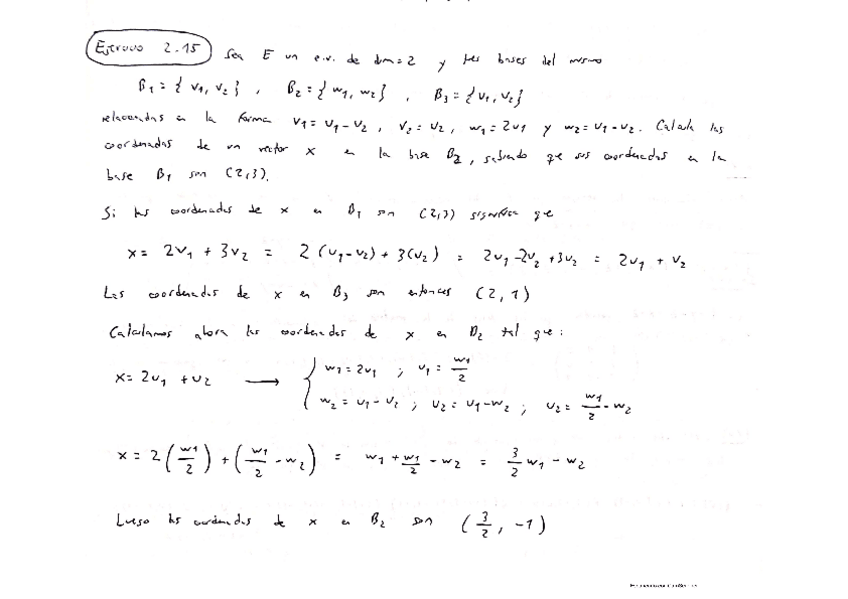 Ejercicio 2.15 Sea E un e.v. de dim=2 y tres bases del mismo
B₁ = { v₁, v₂ } , B₂ = { w₁, w₂ } , B₃ = { u₁, u₂ }
relacionadas en la forma v₁ = u₁ - u₂ , v₂ = u₂ , w₁ = 2u₁ y w₂ = u₁ - u₂. Calcula las
coordenadas de un vector x en la base B₂, sabiendo que sus coordenadas en la
base B₁ son (2,3).
Si las coordenadas de x en B₁ son (2,3) significa que
x = 2v₁ + 3v₂ = 2 (u₁-u₂) + 3(u₂) = 2u₁ - 2u₂ + 3u₂ = 2u₁ + u₂
Las coordenadas de x en B₃ son entonces (2,1)
Calculamos ahora las coordenadas de x en B₂ tal que:
x = 2u₁ + u₂ → { w₁ = 2u₁ ; u₁ = w₁/2
w₂ = u₁ - u₂ ; u₂ = u₁ - w₂ ; u₂ = w₁/2 - w₂
x = 2 (w₁/2) + (w₁/2 - w₂) = w₁ + w₁/2 - w₂ = 3/2 w₁ - w₂
Luego las coordenadas de x en B₂ son (3/2, -1)